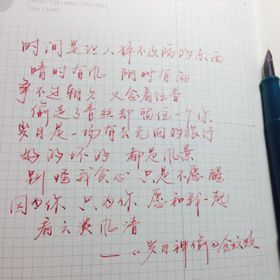 时间是让人猝不及防的东西
晴时有风 阴时有雨
争不过朝夕 又念着往昔
偷走了青丝却留住一个你
岁月是一场有去无回的旅行
好的坏的 都是风景
别怪我贪心 只是不愿醒
因为你 只为你 愿和我一起
看云淡风清
——《岁月神偷》金玟岐